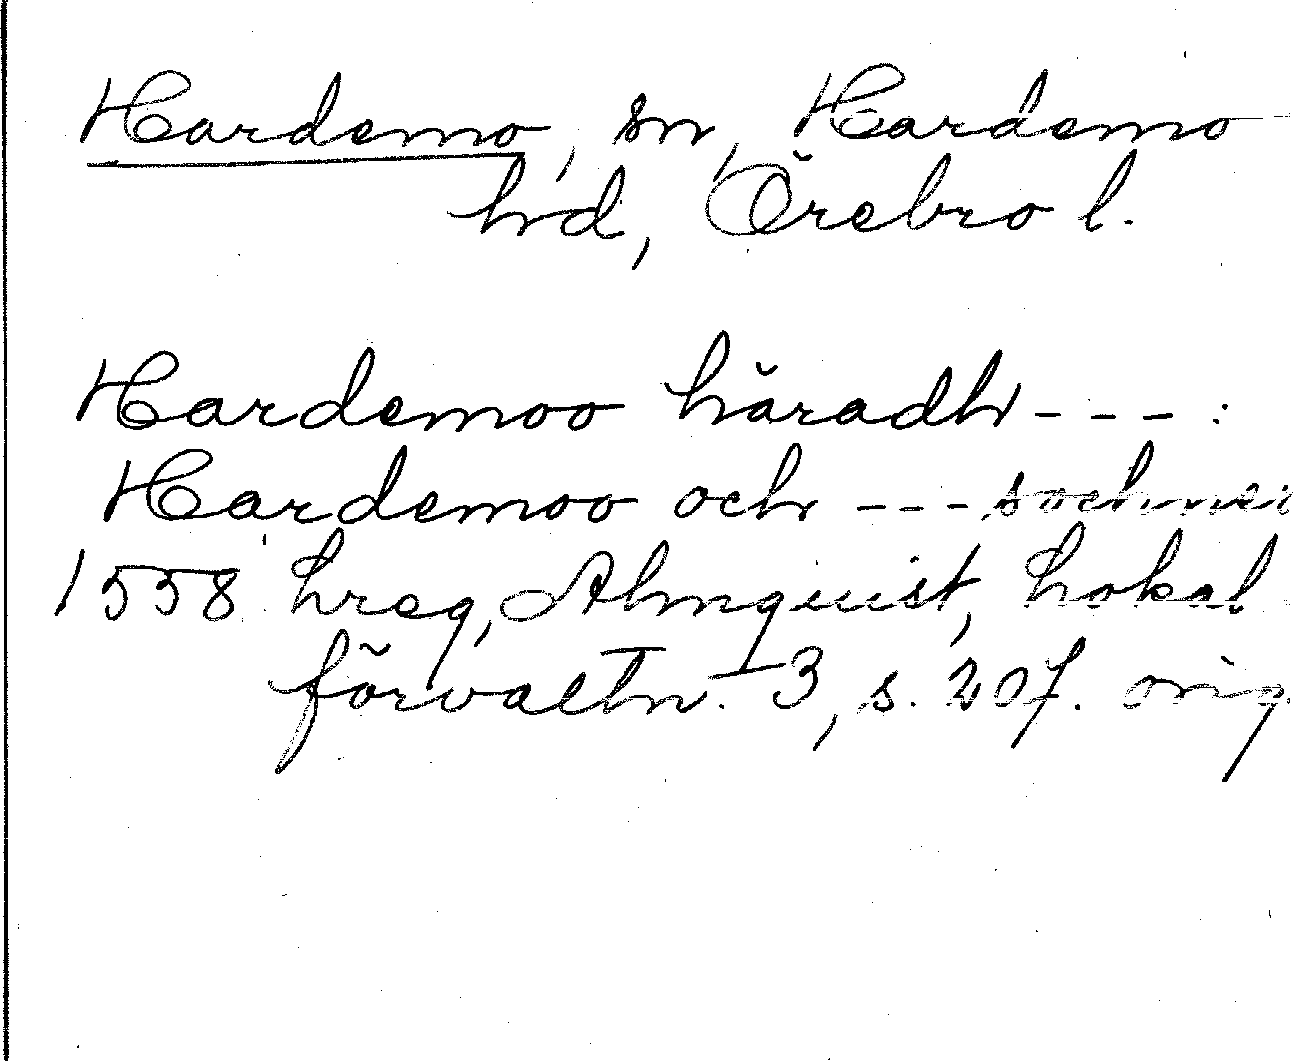 Hardemo, sn, Hardemo
hd, Örebro l.
Hardemoo häradh - - - :
Hardemoo och - - -
1558 hreg, Almquist, Lokal
förvaltn. 3, s. 207. orig.